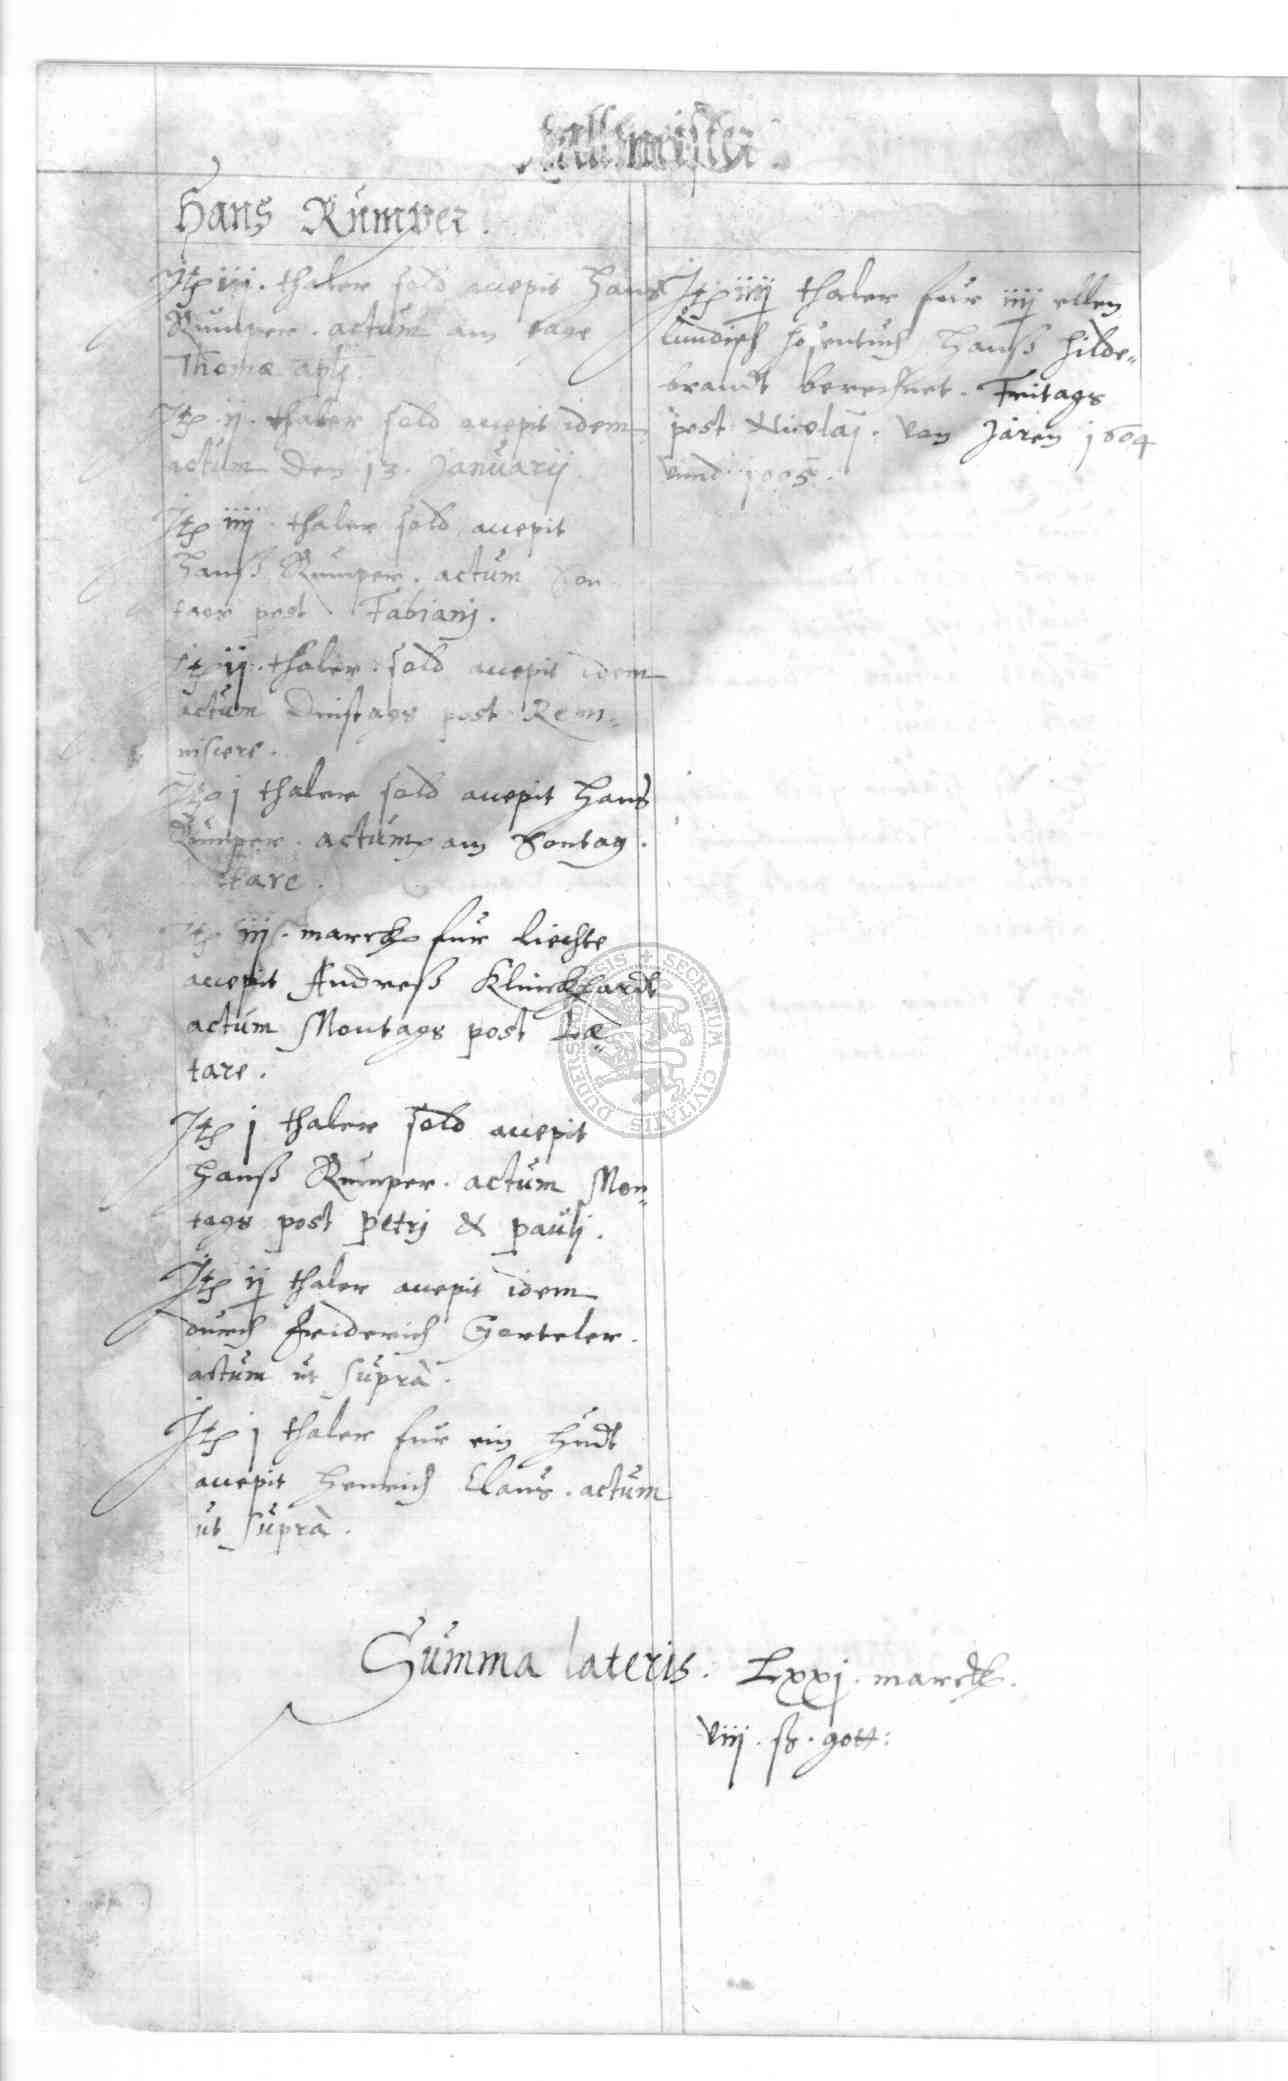 Hans Rümper.
Jtem iij. thaler sold accepit Hans
Rümper. actum am tage
Thomæ apli
Jtem ij. thaler sold accepit idem
actum den 13. Januarij
Jtem iiij. thaler sold accepit
Hanß Rumper. actum Son
tags post Fabianj.
Jtem ij. thaler sold accepit idem
actum Dinstags post Remi„
niscere.
Jtem j thaler sold accepit Hans
Rümper. actum am Sontag
tare.
Jtem iij. marck für liechte
accepit Andreß Klinckhardt
actum Montags post Læ„
tare.
Jtem j thaler sold accepit
Hanß Rumper. actum Mon„
tags post Petrj & Paulj.
Jtem ij thaler accepit idem
durch Friderich Gerteler.
actum ut suprà.
Jtem j thaler für ein Hudt
accepit Henrich Claus. actum
ut Suprà.
Jtem iiij thaler für iiij ellen
Lündisch hosentuch Hanß Hilde„
brandt berechnet. Freitags
post Nicolaj. von Jaren 1604
vnd 1605.
Summa lateris. Lxxj. marck.
viij. ß. gott:
DUDERS SIS SECRETUM CIVITATIS